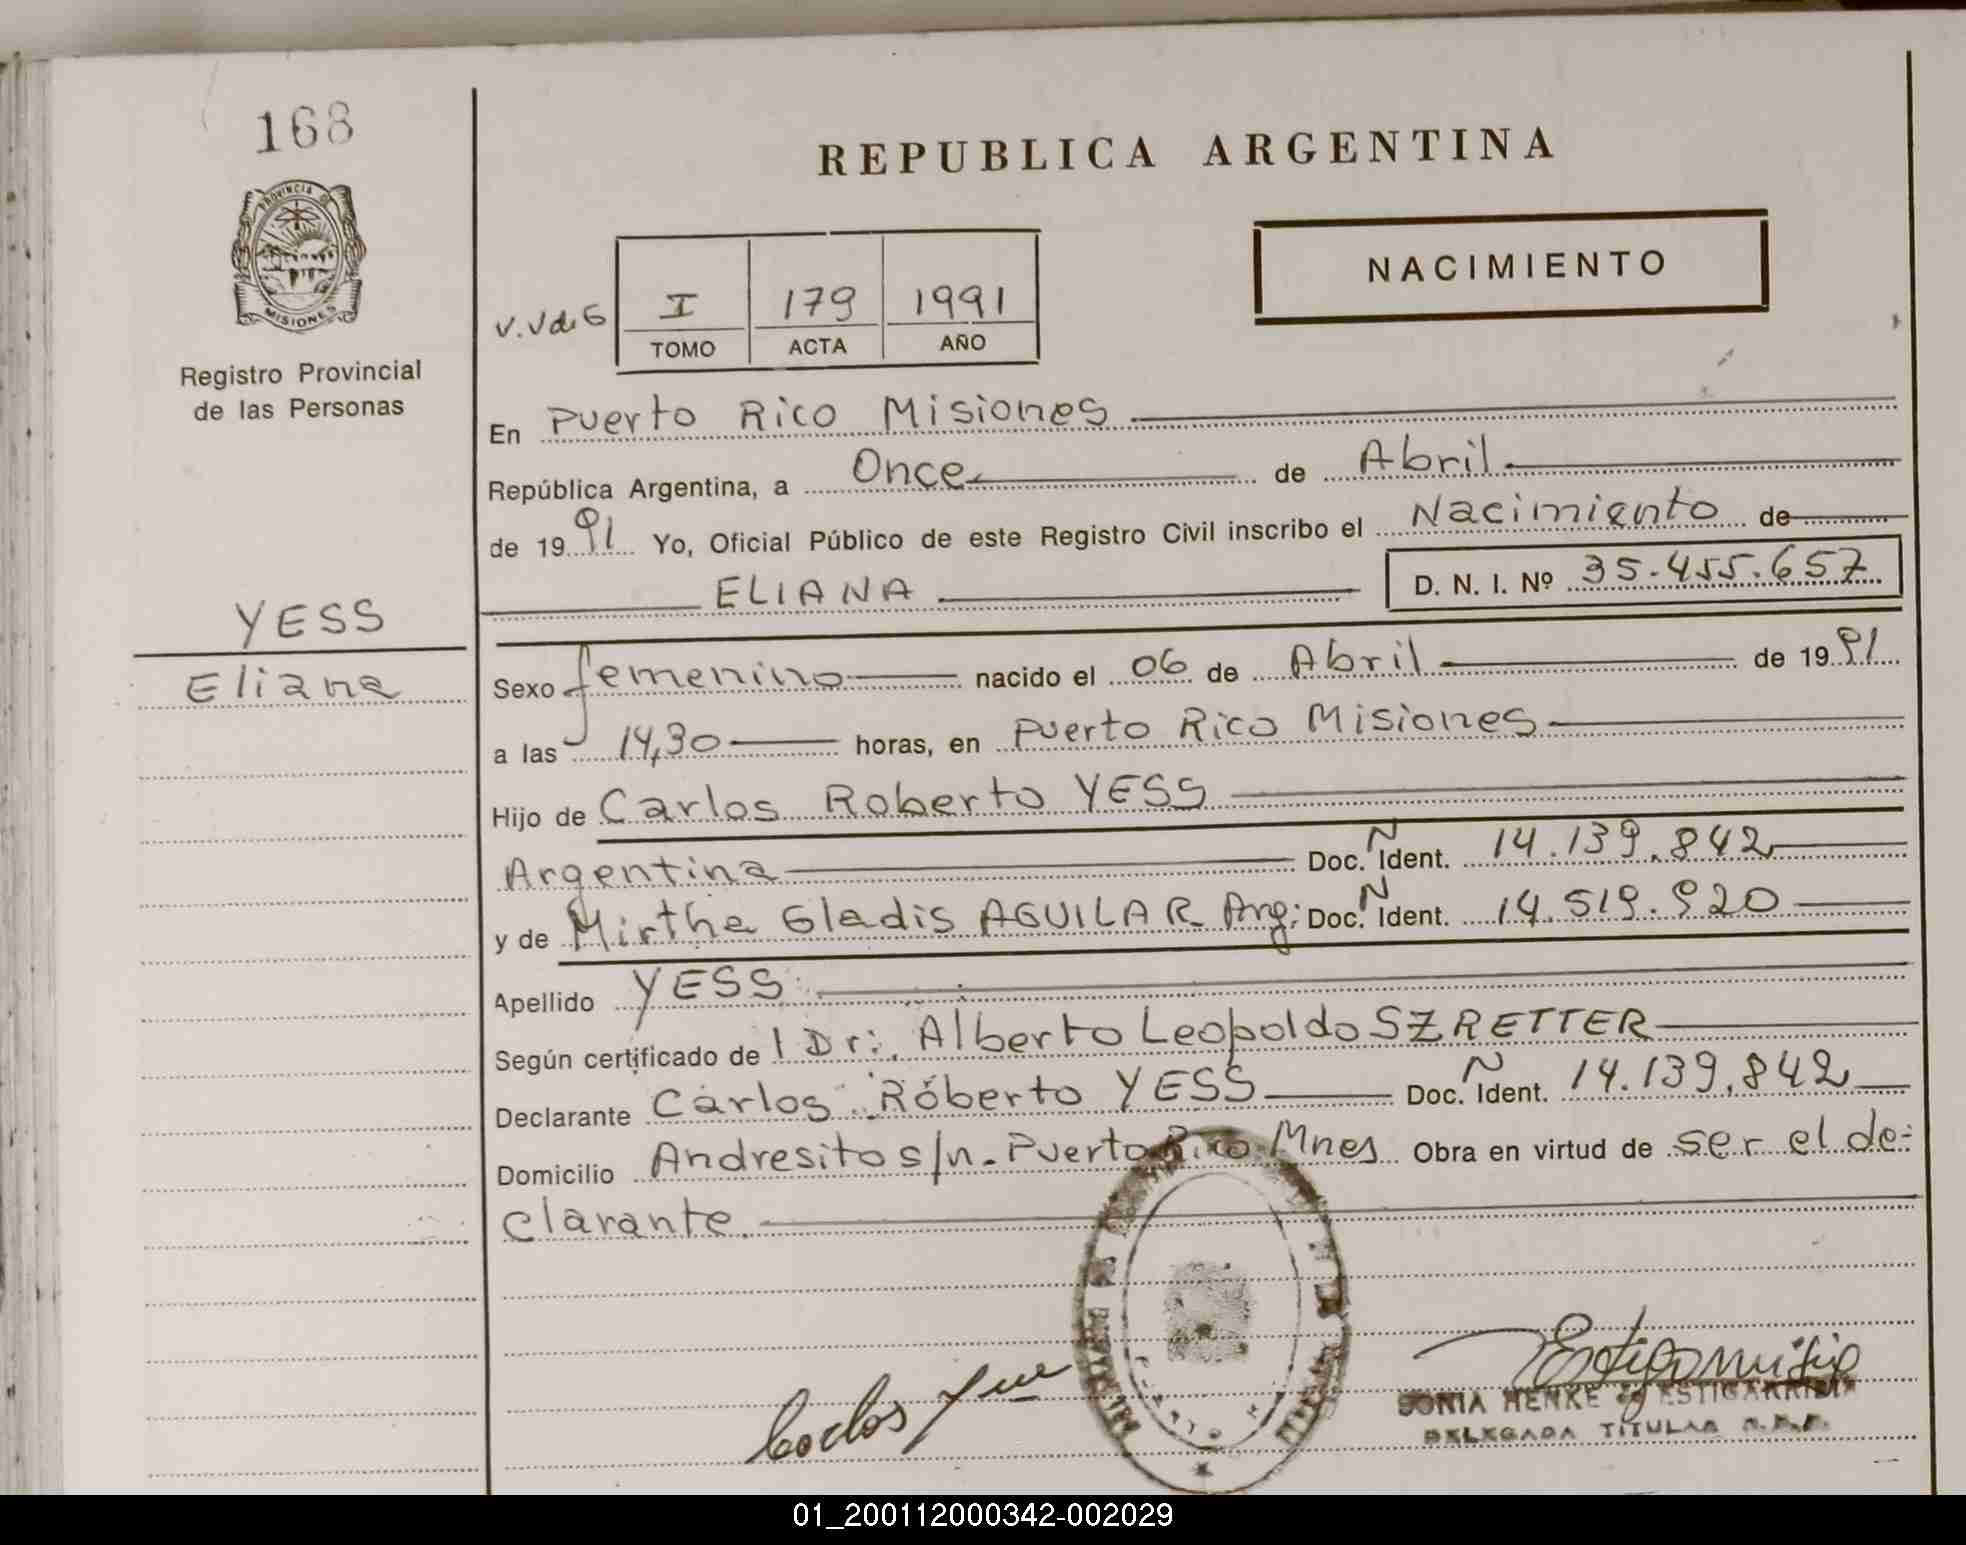 168
PROVINCIA DE
MISIONES
Registro Provincial
de las Personas
YESS
Eliana
REPUBLICA ARGENTINA
NACIMIENTO
I 179 1991
TOMO ACTA AÑO
En Puerto Rico Misiones
República Argentina, a Once de Abril
de 1991 Yo, Oficial Público de este Registro Civil inscribo el Nacimiento de
ELIANA D. N. I. Nº 35.455.657
Sexo femenino nacido el 06 de Abril de 1991
a las 14,30 horas, en Puerto Rico Misiones
Hijo de Carlos Roberto YESS
Argentina Doc. N Ident. 14.139.842
y de Mirtha Gladis AGUILAR Arg: Doc. N Ident. 14.519.920
Apellido YESS
Según certificado de l Dr: Alberto Leopoldo SZRETTER
Declarante Carlos Roberto YESS Doc. N Ident. 14.139.842
Domicilio Andresito s/n. Puerto Rico Mnes Obra en virtud de ser el de-
clarante.
SONIA HENKE de ESTIGARRIBIA
DELEGADA TITULAR R.P.P.
01_200112000342-002029